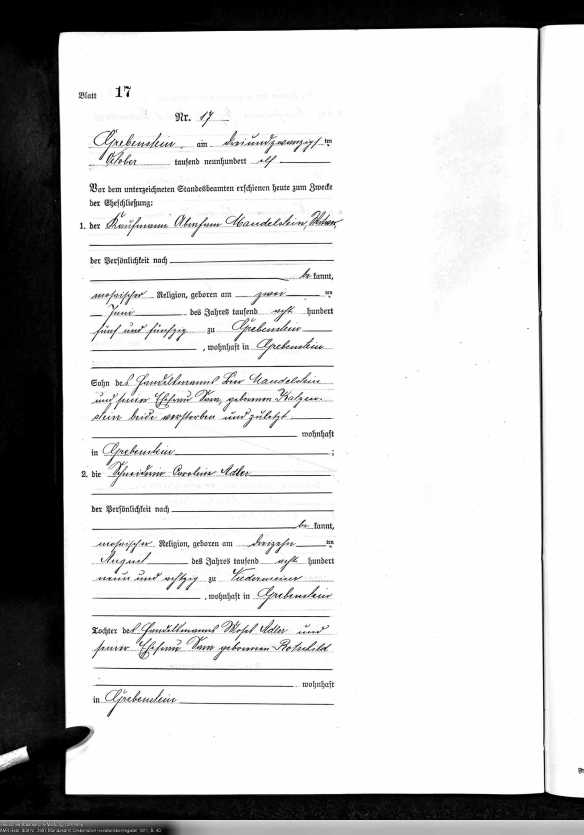 Blatt 17
Nr. 17
Grebenstein am dreiundzwanzigsten
Oktober tausend neunhundert elf
Vor dem unterzeichneten Standesbeamten erschienen heute zum Zwecke
der Eheschließung:
1. der Kaufmann Abraham Mandelstein, Witwer,
der Persönlichkeit nach
be kannt,
mosaischer Religion, geboren am zwei ten
Juni des Jahres tausend acht hundert
fünf und fünfzig zu Grebenstein
, wohnhaft in Grebenstein
Sohn des Handelsmanns Mandelstein
und seiner Ehefrau Sara, geborenen Katzen-
stein beide verstorben und zuletzt
wohnhaft
in Grebenstein ;
2. die Caroline Adler
der Persönlichkeit nach
be kannt,
mosaischer Religion, geboren am dreizehn ten
August des Jahres tausend acht hundert
neun und achtzig zu
, wohnhaft in Grebenstein
Tochter des Handelsmanns Moses Adler und
seiner Ehefrau Sara geborenen Rotschild
wohnhaft
in Grebenstein